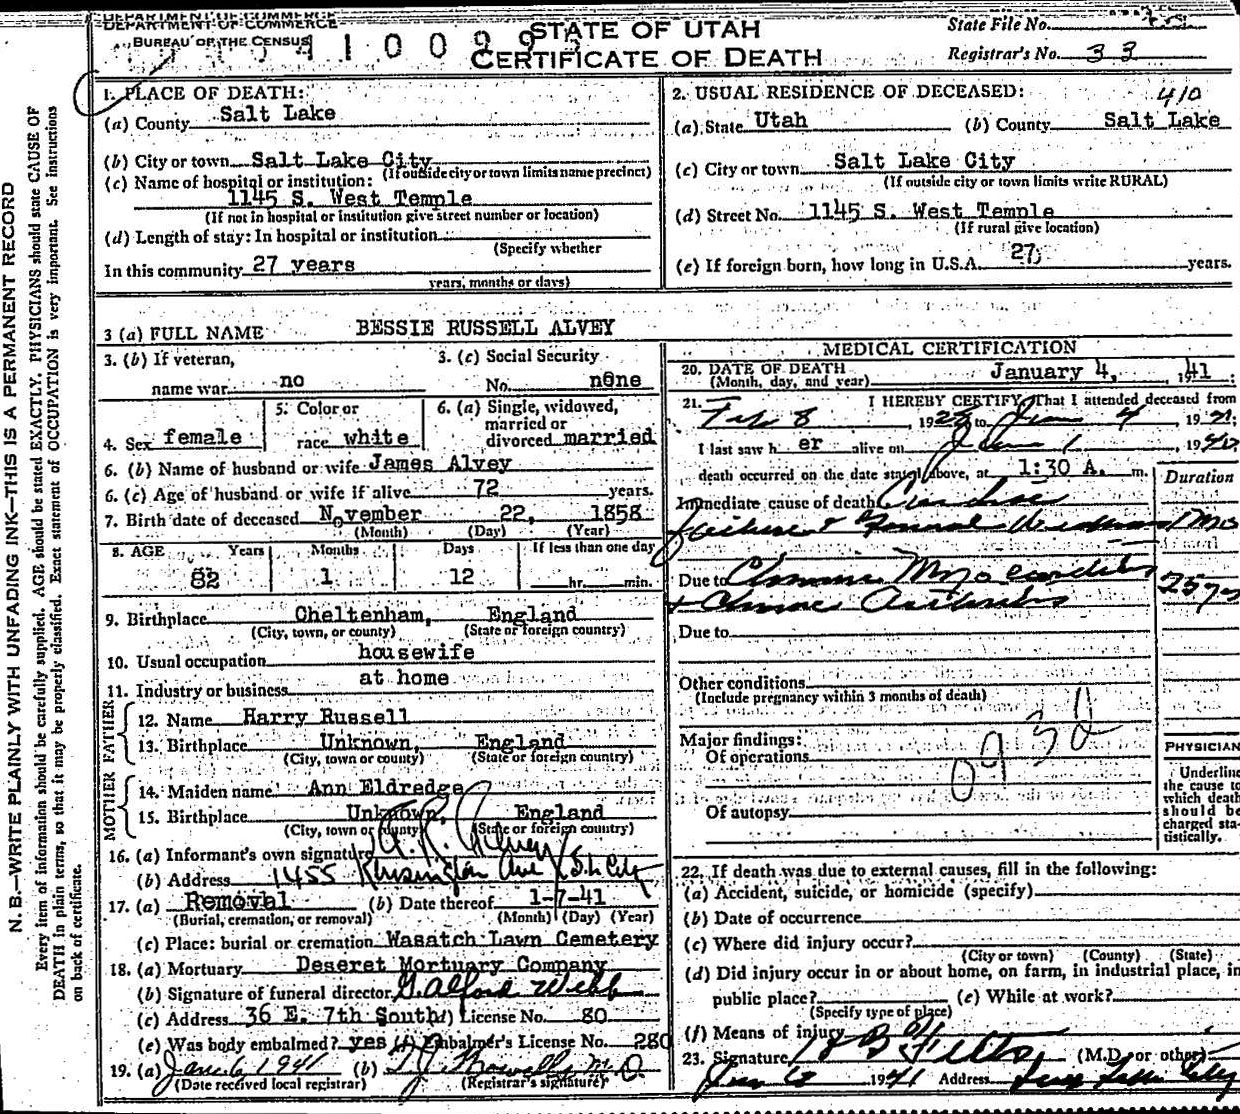 DEPARTMENT OF COMMERCE
BUREAU OF THE CENSUS
STATE OF UTAH
CERTIFICATE OF DEATH
State File No.
Registrar's No. 33
N. B.—WRITE PLAINLY WITH UNFADING INK—THIS IS A PERMANENT RECORD
Every item of information should be carefully supplied. AGE should be stated EXACTLY. PHYSICIANS should state CAUSE OF
DEATH in plain terms, so that it may be properly classified. Exact statement of OCCUPATION is very important. See instructions
on back of certificate.
1. PLACE OF DEATH:
(a) County Salt Lake
(b) City or town Salt Lake City
(If outside city or town limits name precinct)
(c) Name of hospital or institution:
1145 S. West Temple
(If not in hospital or institution give street number or location)
(d) Length of stay: In hospital or institution
(Specify whether
In this community 27 years
years, months or days)
2. USUAL RESIDENCE OF DECEASED: 410
(a) State Utah (b) County Salt Lake
(c) City or town Salt Lake City
(If outside city or town limits write RURAL)
(d) Street No. 1145 S. West Temple
(If rural give location)
(e) If foreign born, how long in U.S.A. 27 years.
3 (a) FULL NAME BESSIE RUSSELL ALVEY
3. (b) If veteran, name war no
3. (c) Social Security No. none
4. Sex female
5. Color or race white
6. (a) Single, widowed, married or divorced married
6. (b) Name of husband or wife James Alvey
6. (c) Age of husband or wife if alive 72 years.
7. Birth date of deceased November 22, 1858
(Month) (Day) (Year)
8. AGE Years Months Days If less than one day
82 1 12 hr. min.
9. Birthplace Cheltenham, England
(City, town, or county) (State or foreign country)
10. Usual occupation housewife
11. Industry or business at home
FATHER
12. Name Harry Russell
13. Birthplace Unknown, England
(City, town or county) (State or foreign country)
MOTHER
14. Maiden name Ann Eldredge
15. Birthplace Unknown, England
(City, town or county) (State or foreign country)
16. (a) Informant's own signature
(b) Address 1455 Kensington Ave S.L. City
17. (a) Removal (b) Date thereof 1-7-41
(Burial, cremation, or removal) (Month) (Day) (Year)
(c) Place: burial or cremation Wasatch Lawn Cemetery
18. (a) Mortuary Deseret Mortuary Company
(b) Signature of funeral director G. Alford Webb
(c) Address 36 E. 7th South License No. 80
(e) Was body embalmed? yes (f) Embalmer's License No. 280
19. (a) Jan 6 1941 (b) M.D.
(Date received local registrar) (Registrar's signature)
MEDICAL CERTIFICATION
20. DATE OF DEATH January 4, 1941
(Month, day, and year)
21. I HEREBY CERTIFY, That I attended deceased from
Feb 8 1928 to Jan 4 1941;
I last saw her alive on Jan 1 19
death occurred on the date stated above, at 1:30 A. m.
Duration
Immediate cause of death Cardiac
failure &
Due to Chronic Myocarditis 25 yrs
& Chronic Arthritis
Due to
Other conditions
(Include pregnancy within 3 months of death)
Major findings:
Of operations
093d
Of autopsy
PHYSICIAN
Underline
the cause to
which death
should be
charged sta-
tistically.
22. If death was due to external causes, fill in the following:
(a) Accident, suicide, or homicide (specify)
(b) Date of occurrence
(c) Where did injury occur?
(City or town) (County) (State)
(d) Did injury occur in or about home, on farm, in industrial place, in
public place? (e) While at work?
(Specify type of place)
(f) Means of injury
23. Signature (M.D. or other)
1941 Address Salt Lake City